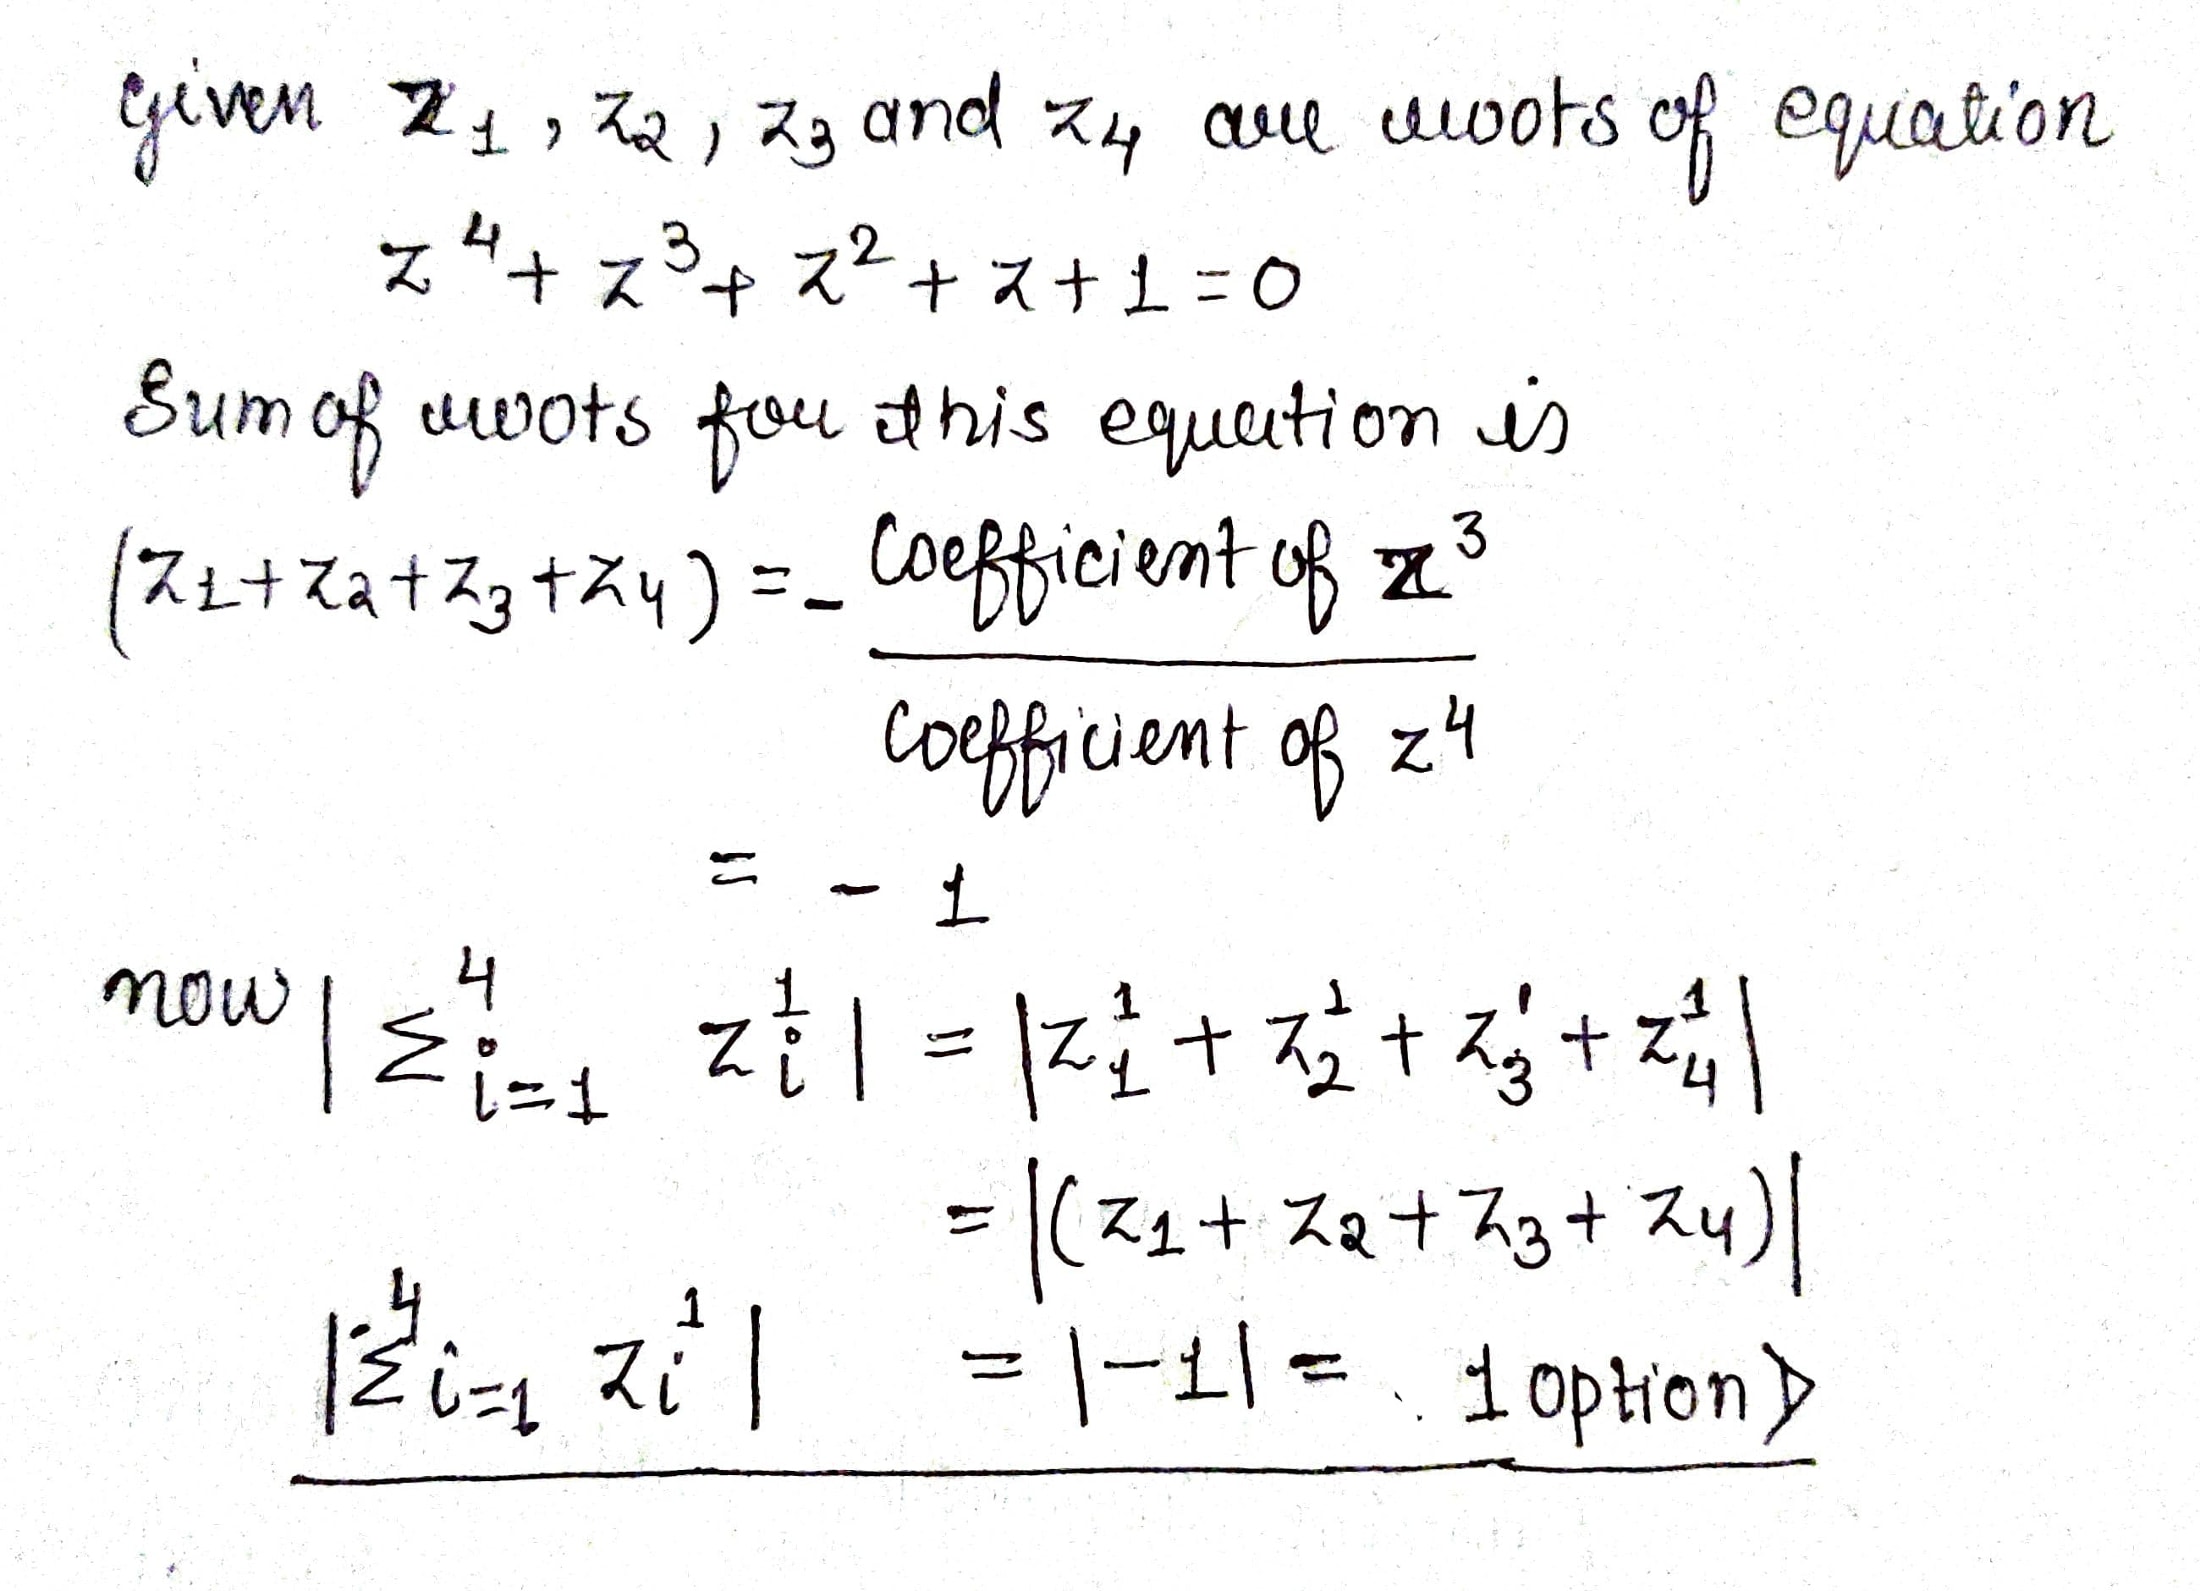 given z₁, z₂, z₃ and z₄ are roots of equation
z⁴ + z³ + z² + z + 1 = 0
Sum of roots for this equation is
(z₁+z₂+z₃+z₄) = - Coefficient of z³
Coefficient of z⁴
= - 1
now |Σ⁴ᵢ₌₁ zᵢ¹| = |z₁¹ + z₂¹ + z₃¹ + z₄¹|
= |(z₁ + z₂ + z₃ + z₄)|
|Σ⁴ᵢ₌₁ zᵢ¹| = |-1| = 1 option D